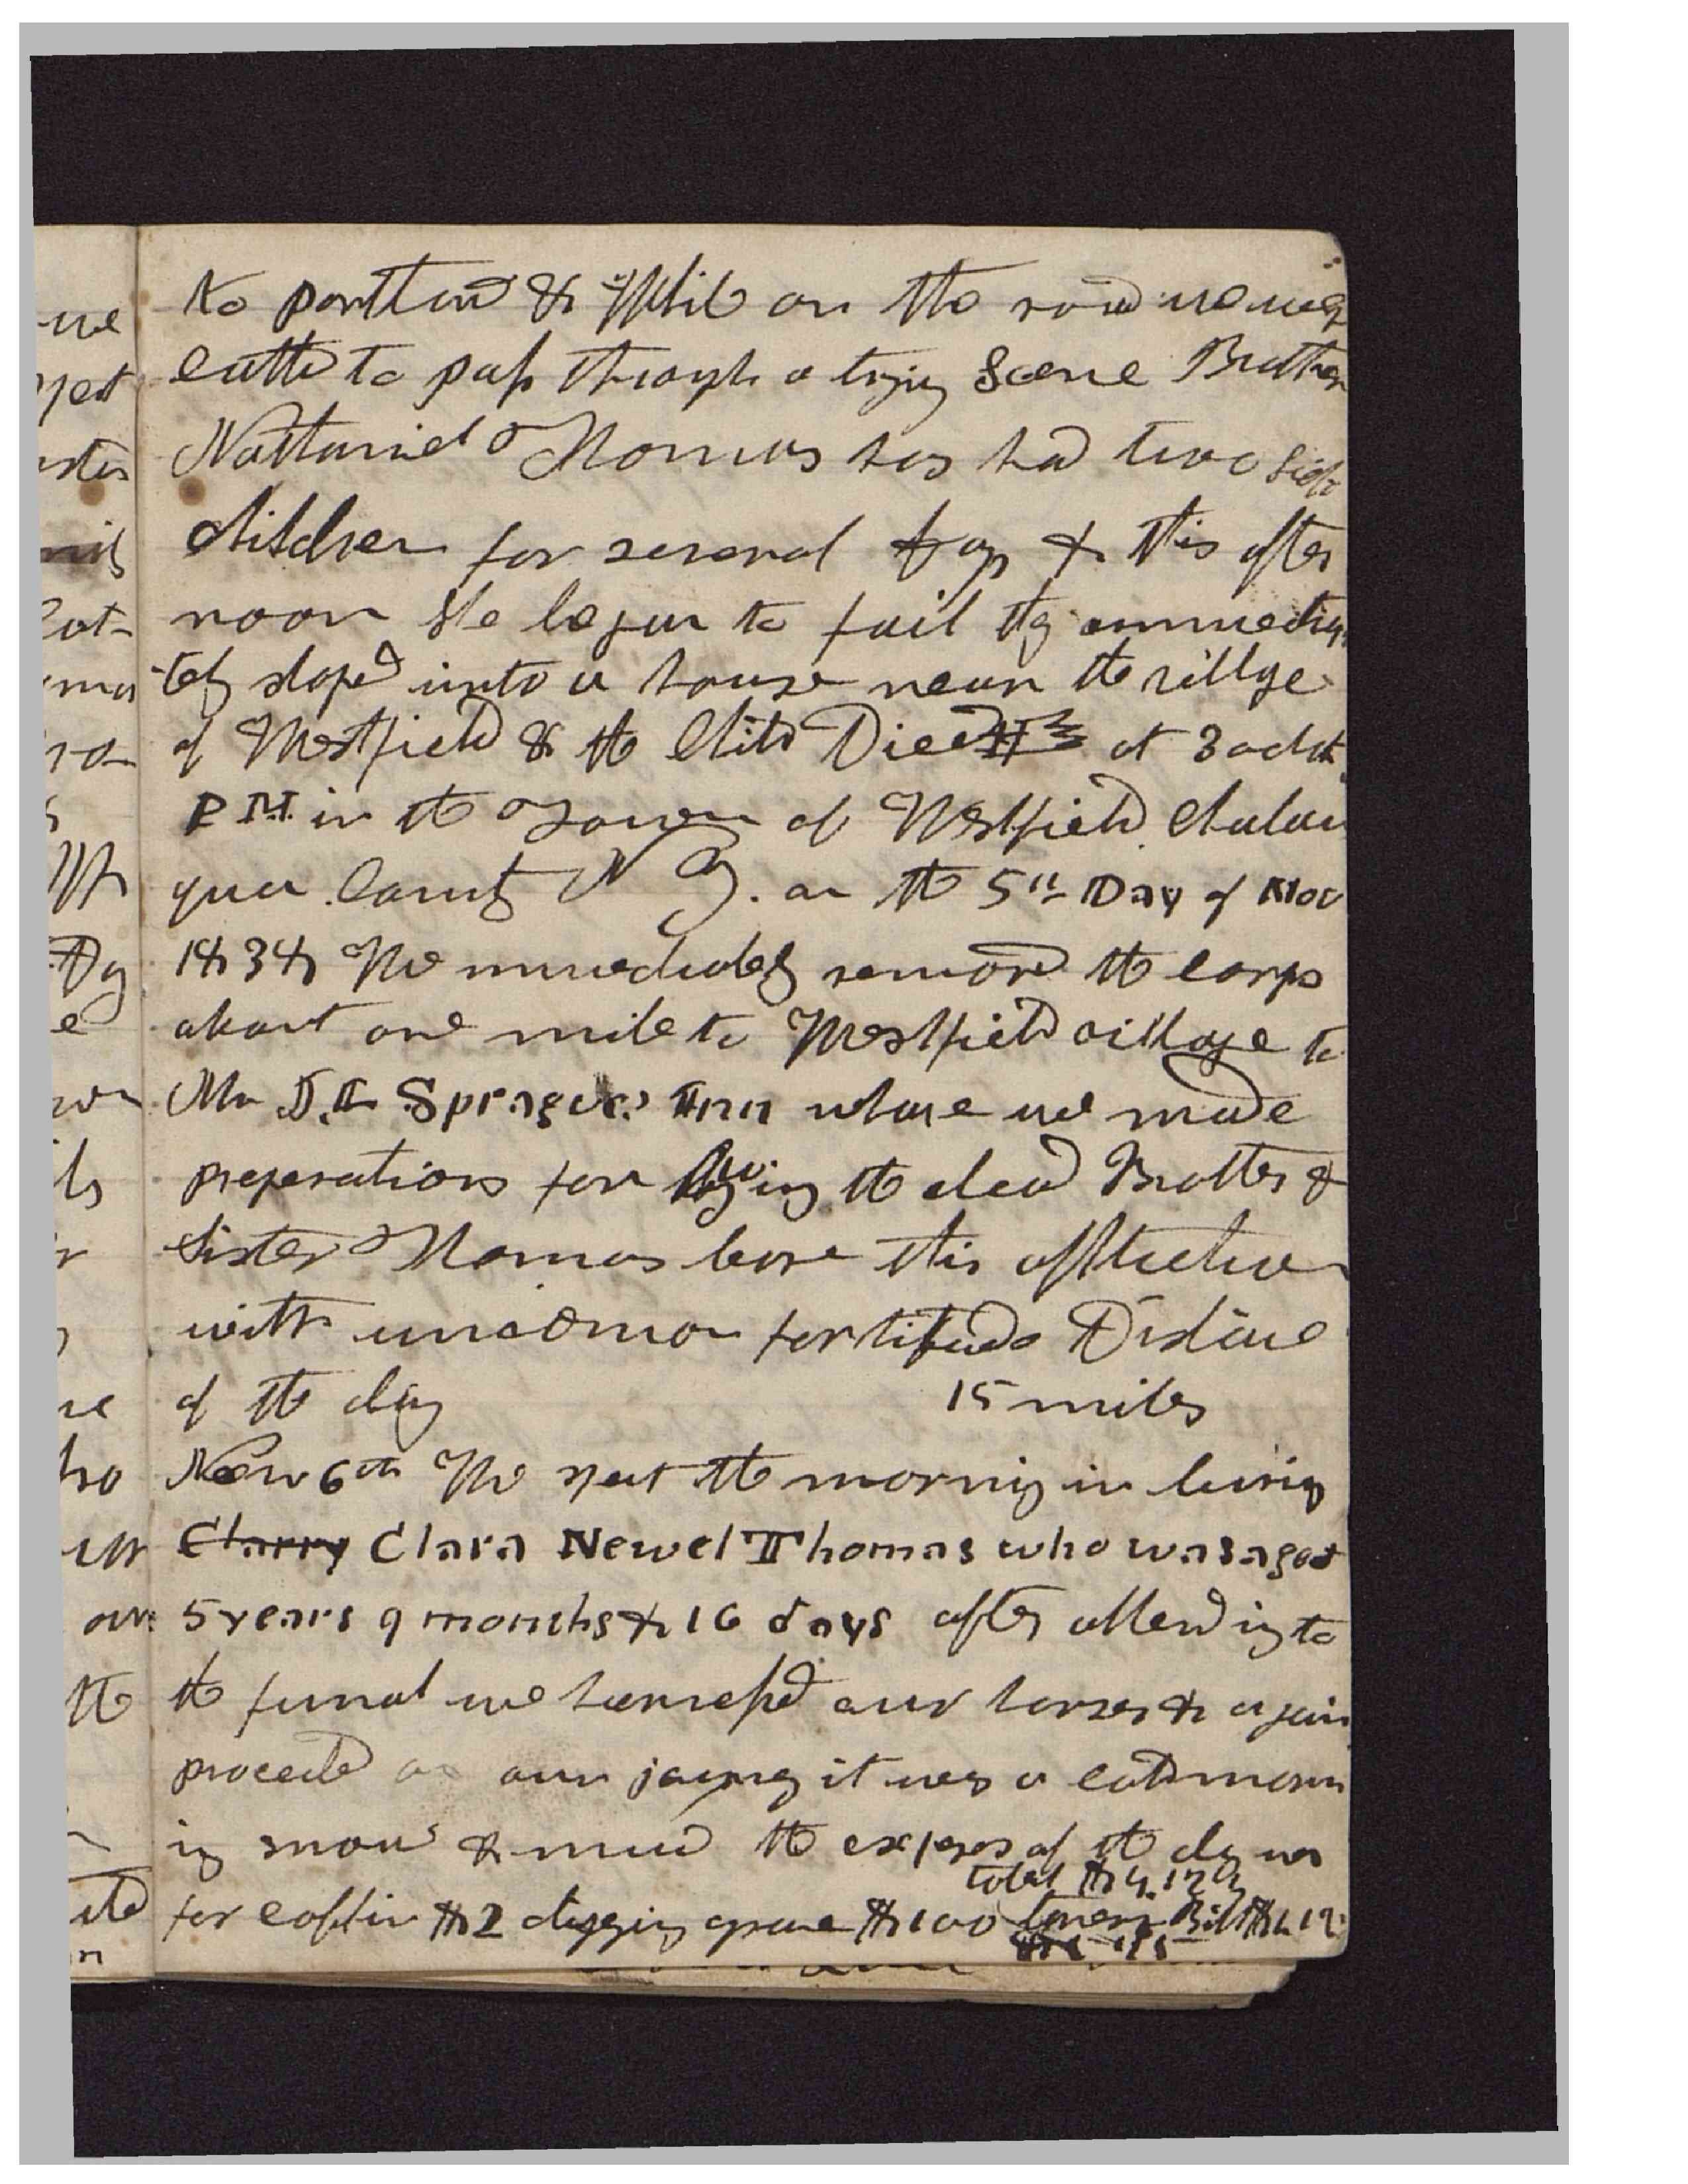 to portland & While on the road we were
called to pass through a trying Scene Brother
Nathaniel Thomas has had two sick
Children for several days & this after
noon she began to fail they immedia
tely stoped into a house near the villige
of Westfield & the Child Died at 3 oclk
P M. in the Town of Westfield Chatau
qua County N Y. on the 5th Day of Nov
1834 We immediately removed the corps
about one mile to Westfield village to
Mr Spragues Inn whare we made
preperations for burying the dead Brother &
Sister Thomas bore this affliction
with uncommon fortitude Distance
of the day 15 miles
Nov 6th We spent the morning in burying
Clarry Clara Newel Thomas who was aged
5 years 9 months & 16 days after attending to
the funeral we harnessed our horses & again
proceeded on our journey it was a cold morn
ing snow & mud the expenses of the day was
total
for coffin $2 digging grave $100 tavern Bill